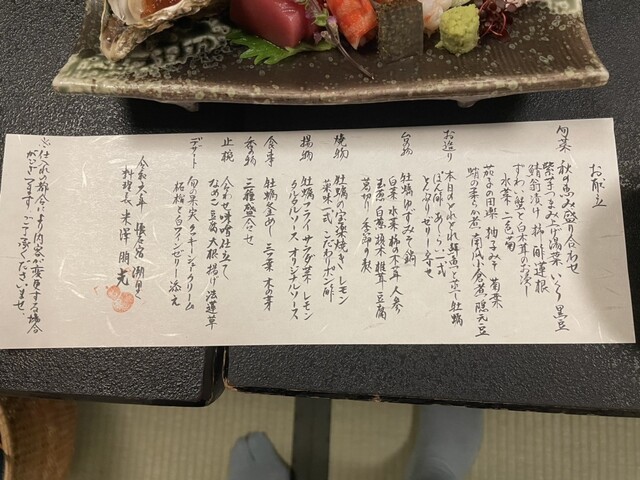 お献立
旬菜 秋の恵み盛り合わせ
紫芋つまみ上げ 满菜 いくら 黒豆
鯖 漬け 柿 酢蓮根
ずわい蟹と白木耳のお浸し
水菜 二色 菊
茄子の田楽 柚子みそ 菊菜
鮹の柔らか煮 南瓜 小倉煮 隠元豆
お造り 本日のとれとれ鮮魚と一寸 牡蠣
ぽん酢 あしらい一式
とんぶりゼリー 寄せ
台の物 牡蠣 ゆずみそ鍋
白菜 水菜 椎の木茸 人参
玉葱 白葱 榎木 椎茸 豆腐
葛切り 季節の麩
焼物 牡蠣の宝楽焼き レモン
薬味一式 こだわりポン酢
揚物 牡蠣フライ サラダ菜 レモン
タルタルソース オリジナルソース
食事 牡蠣釜めし 三つ葉 木の芽
香の物 三種盛り合わせ
止椀 合わせ味噌仕立て
なめこ 豆腐 大根 揚げ 法蓮草
デザート 旬の果実 クッキーシュークリーム
柘榴と白ワインゼリー添え
令和六年
料理長 米澤 明光
※仕入れの都合により内容が変更する場合
がございます。ご了承くださいませ。